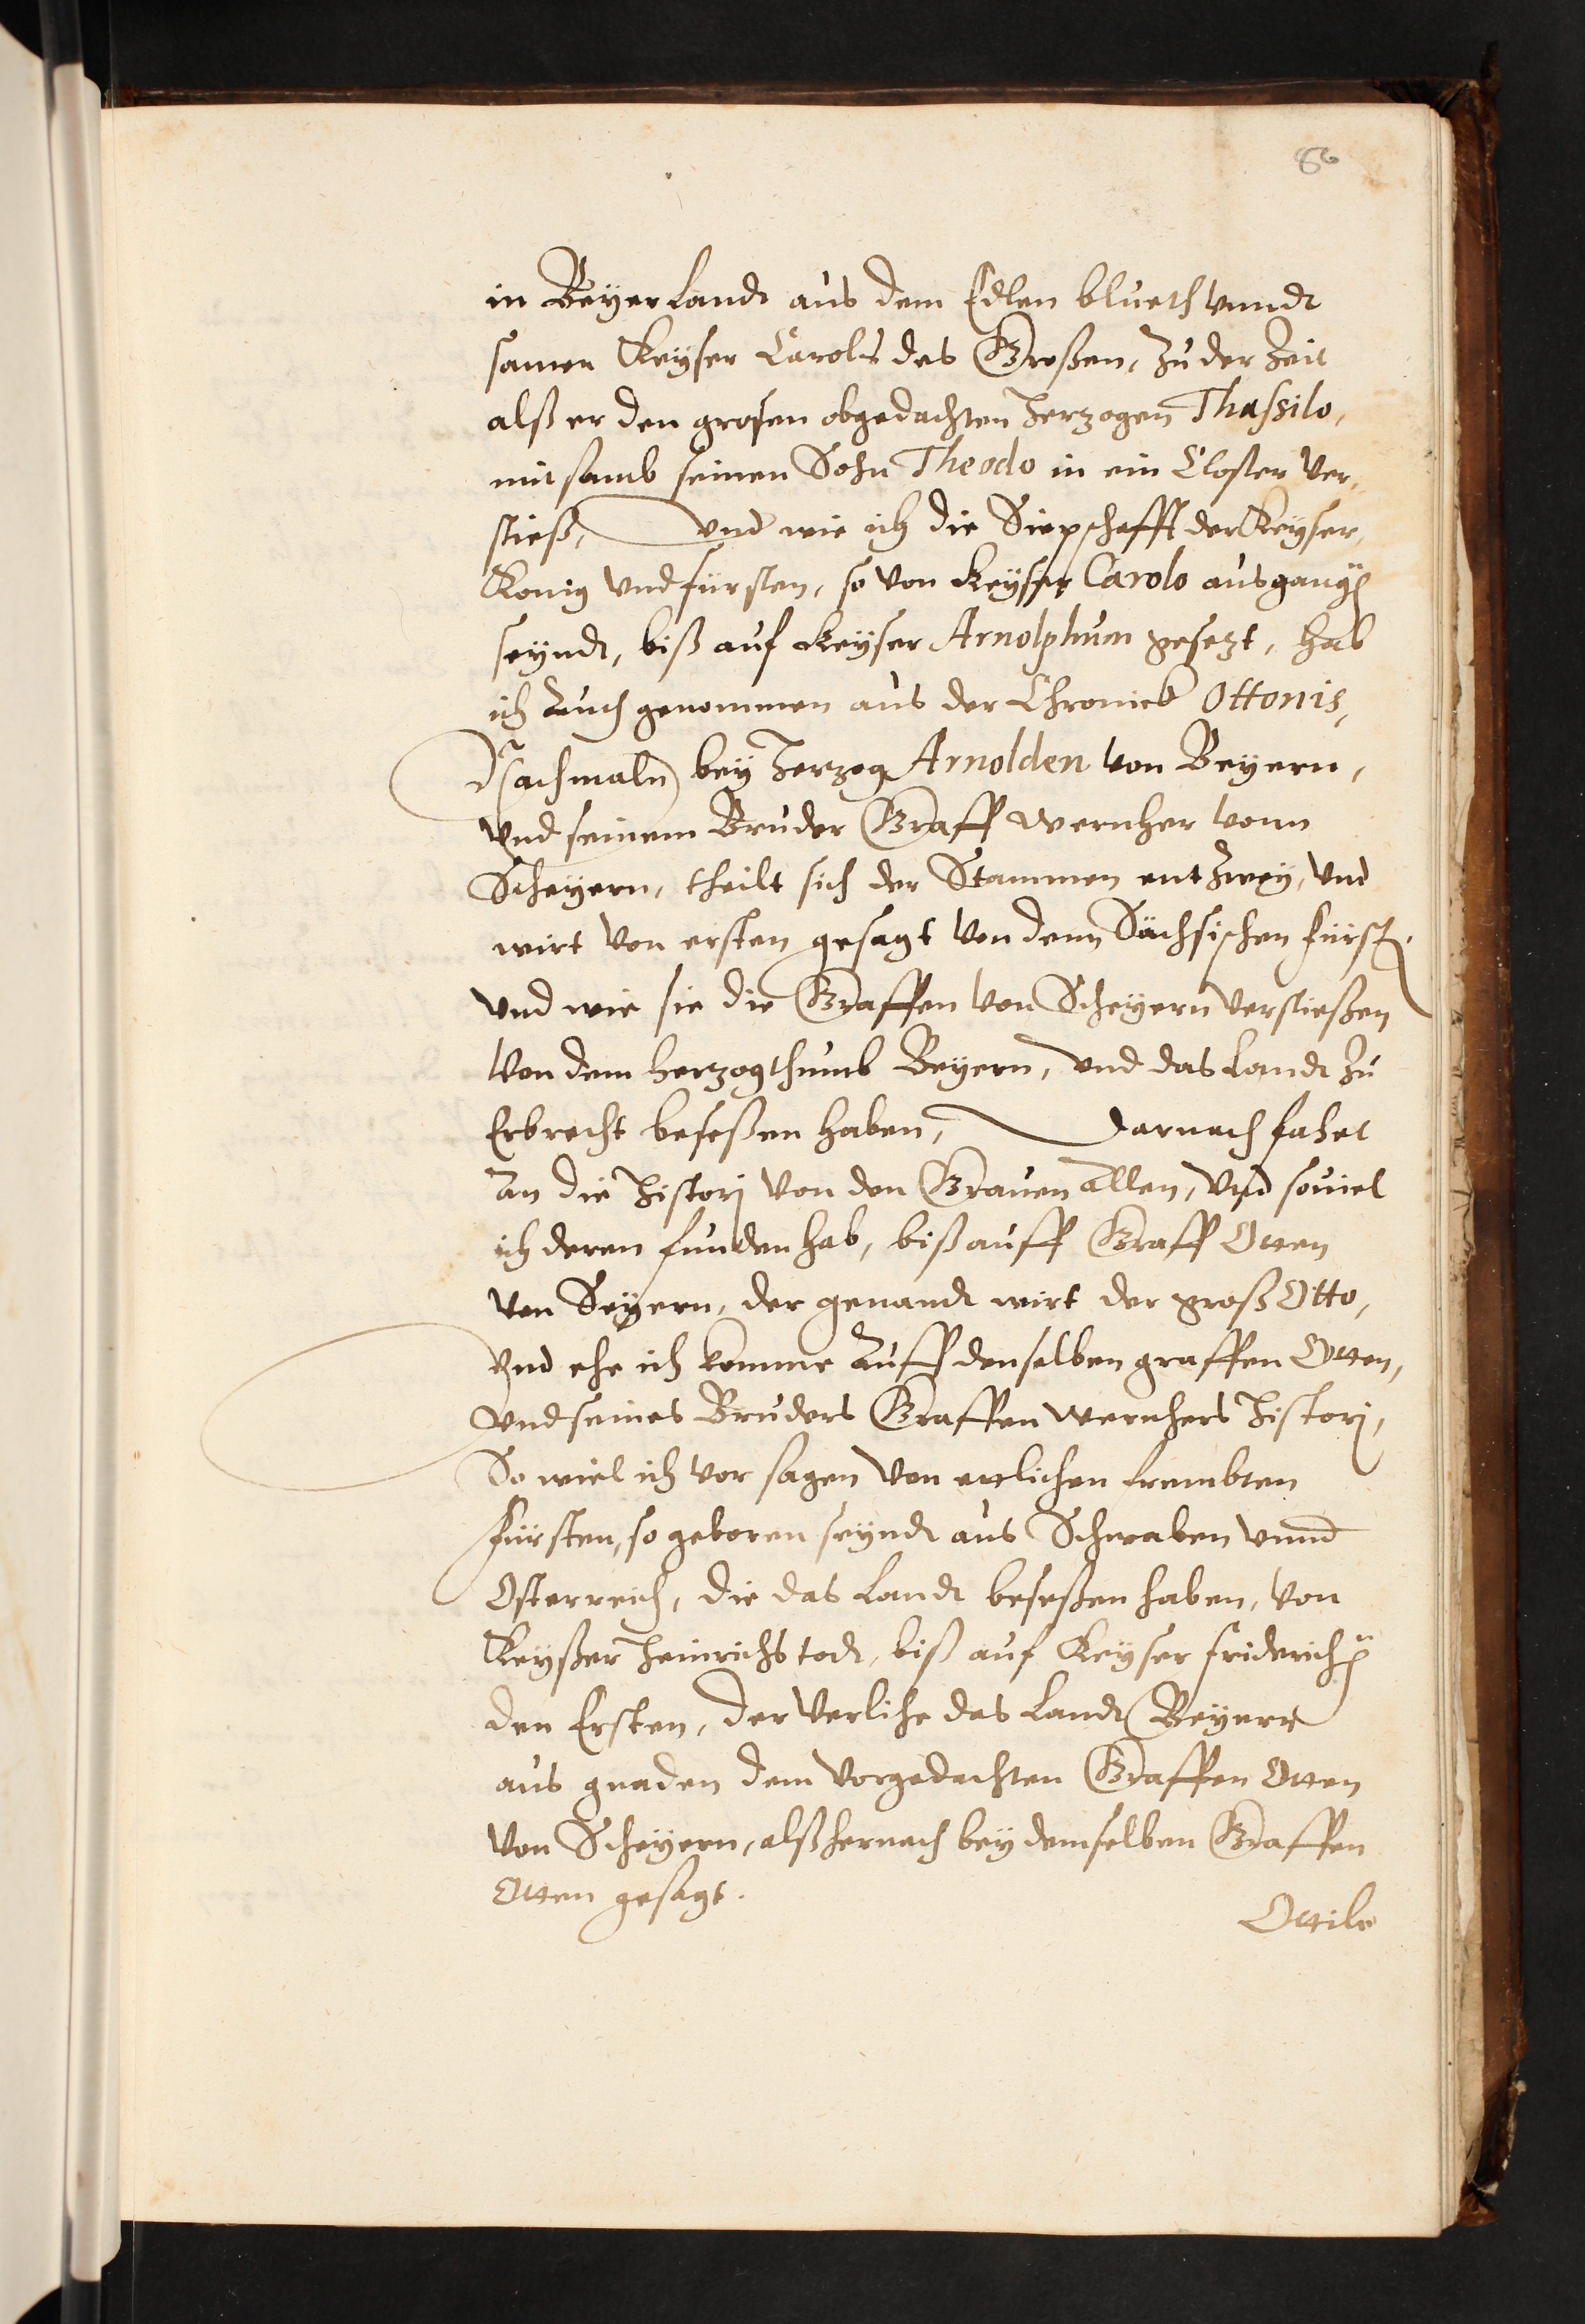 86
in Beyer Landt aus dem Edlen blueth vnndt
samen Keyser Carols des Großen, Zu der Zeit
alß er den grosen obgedachten Herzogen Thassilo,
mit samb seinen Sohn Theodo in ein Closter ver-
stieß, Vnd wie ich die Siepschafft der Keyser,
Konig vnd fürsten, so von Keysser Carolo ausgangen
seyndt, biß auf Keyser Arnolphum gesezt, hab
ich Auch genommen aus der Chronick Ottonis,
Nachmaln bey Herzog Arnolden von Beyern,
Vnd seinem Bruder Graff wernher vonn
Scheyern, theilt sich der Stammen ent Zwey, Vnd
wirt von ersten gesagt von denn Sächsischen fürsten.
Vnd wie sie die Graffen von Scheyern verstießen
Von dem herzogthumb Beyern, vnd das Landt zu
Erbrecht beseßen haben, Darnach fahet
An die Historj von den Grauen Allen, Vnd souiel
ich deren funden hab, biß auff Graff Otten
von Scyern, der genandt wirt der groß Otto,
Vnd ehe ich komme Auff denselben graffen Otten,
Vnd seines Bruders Graffen wernhers Historj,
So wiel ich vor sagen von ettlichen frembten
fürsten, so geboren seyndt aus Schwaben vnnd
Osterreich, die das Landt beseßen haben, von
Keyßer Heinrichs todt, biß auf Keyser friderichen
den Ersten, der verlihe das Landt Beyern
aus gnaden dem vorgedachten Graffen Otten
von Scheyern, alß hernach bey demselben Graffen
Otten gesagt.
Ottilo